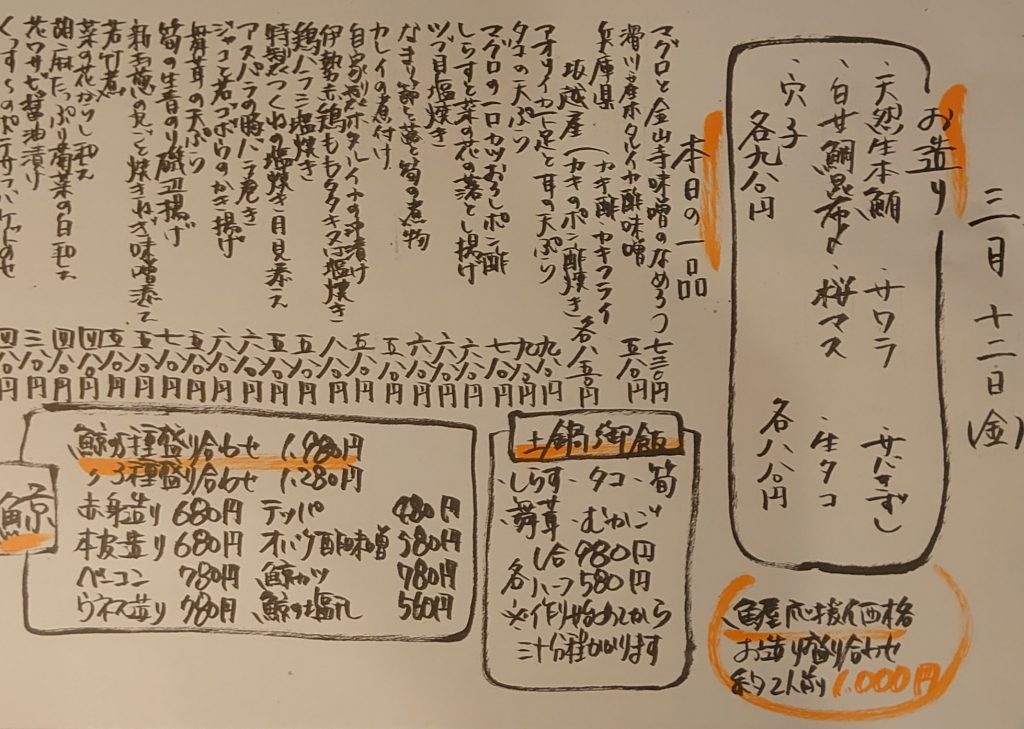 三月十二日(金)
お造り
・天然生本鮪 ・サワラ ・サバきずし
・白甘鯛昆布〆 ・桜マス ・生タコ
・穴子
各九八〇円 各八八〇円
魚屋応援価格
お造り盛り合わせ
約2人前 1,000円
本日の一品
マグロと金山寺味噌のなめろう 七三〇円
滑川産ホタルイカ酢味噌 五八〇円
兵庫県 坂越産(カキ酢 カキフライ カキのポン酢焼き) 各八五〇円
アオリイカ足と耳の天ぷら 九八〇円
タコの天ぷら 九八〇円
マグロの一口カツおろしポン酢 七八〇円
しらすと菜の花の落とし揚げ 六八〇円
ツブ貝塩焼き 六八〇円
なまり節と蕗と筍の煮物 六八〇円
カレイの煮付け 五八〇円
自家製ホタルイカの沖漬け 五八〇円
伊勢赤鶏ももタタキ又は塩焼き 八八〇円
鶏ハラミ塩焼き 五八〇円
特製つくねの塩焼き月見添え 五八〇円
アスパラの豚バラ巻き 六八〇円
ジャコと若ゴボウのかき揚げ 六八〇円
舞茸の天ぷら 五八〇円
筍の生青のり磯辺揚げ 七八〇円
新玉葱の丸ごと焼きねぎ味噌添え 五八〇円
若竹煮 五八〇円
菜の花からし和え 四八〇円
胡麻たっぷり菊菜の白和え 四八〇円
花ワサビ醤油漬け 三八〇円
四八〇円
土鍋御飯
・しらす ・タコ ・筍
・舞茸 ・むかご
各 1合 980円
ハーフ 580円
※作り始めてから
三十分程かかります
鯨
鯨6種盛り合わせ 1,980円
〃3種盛り合わせ 1,280円
赤身造り 680円 テッパ 480円
本皮造り 680円 オバケ酢味噌 580円
ベーコン 780円 鯨カツ 780円
ウネス造り 780円 鯨の塩すじ 560円